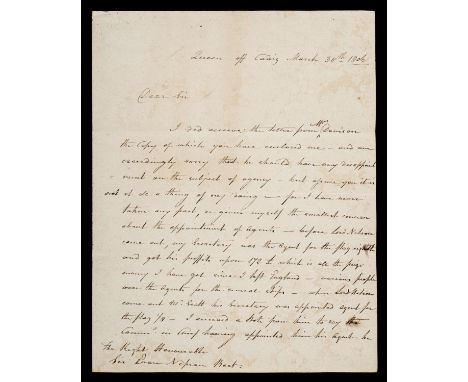 Queen off Cadiz March 30th 1806
Dear Sir
I did receive the letter from Mr. Davison
the Copy of which you have enclosed me - and am
exceedingly sorry that he should have any disappoint
=ment on the subject of agency - but assure you it is
not at all a thing of my doing - for I have never
taken any part, or given myself the smallest concern
about the appointment of Agents - before Lord Nelson
came out, my Secretary was the Agent for the flag
and got his profits upon 172 £ which is all the prize
money I have got since I left England - various people
were the Agents for the several Ships - when Lord Nelson
came out Mr. Scott his Secretary was appointed agent for
the flag - I received a Note from him to say the
Comr. in Chief having appointed him his Agent - he
the Right Honourable
Sir Evan Nepean Bart: